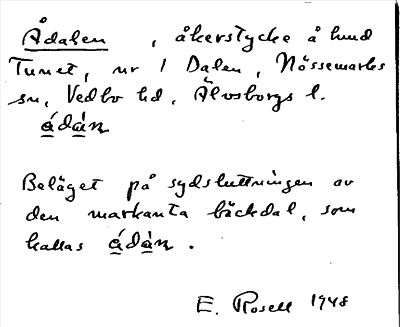 Ådalen , åkerstycke å hmd
Tunet, nr 1 Dalen, Nössemarks
sn, Vedbo hd, Älvsborgs l.
ádàn
Beläget på sydsluttningen av
den markanta bäckdal, som
kallas ádàn.
E. Rosell 1948